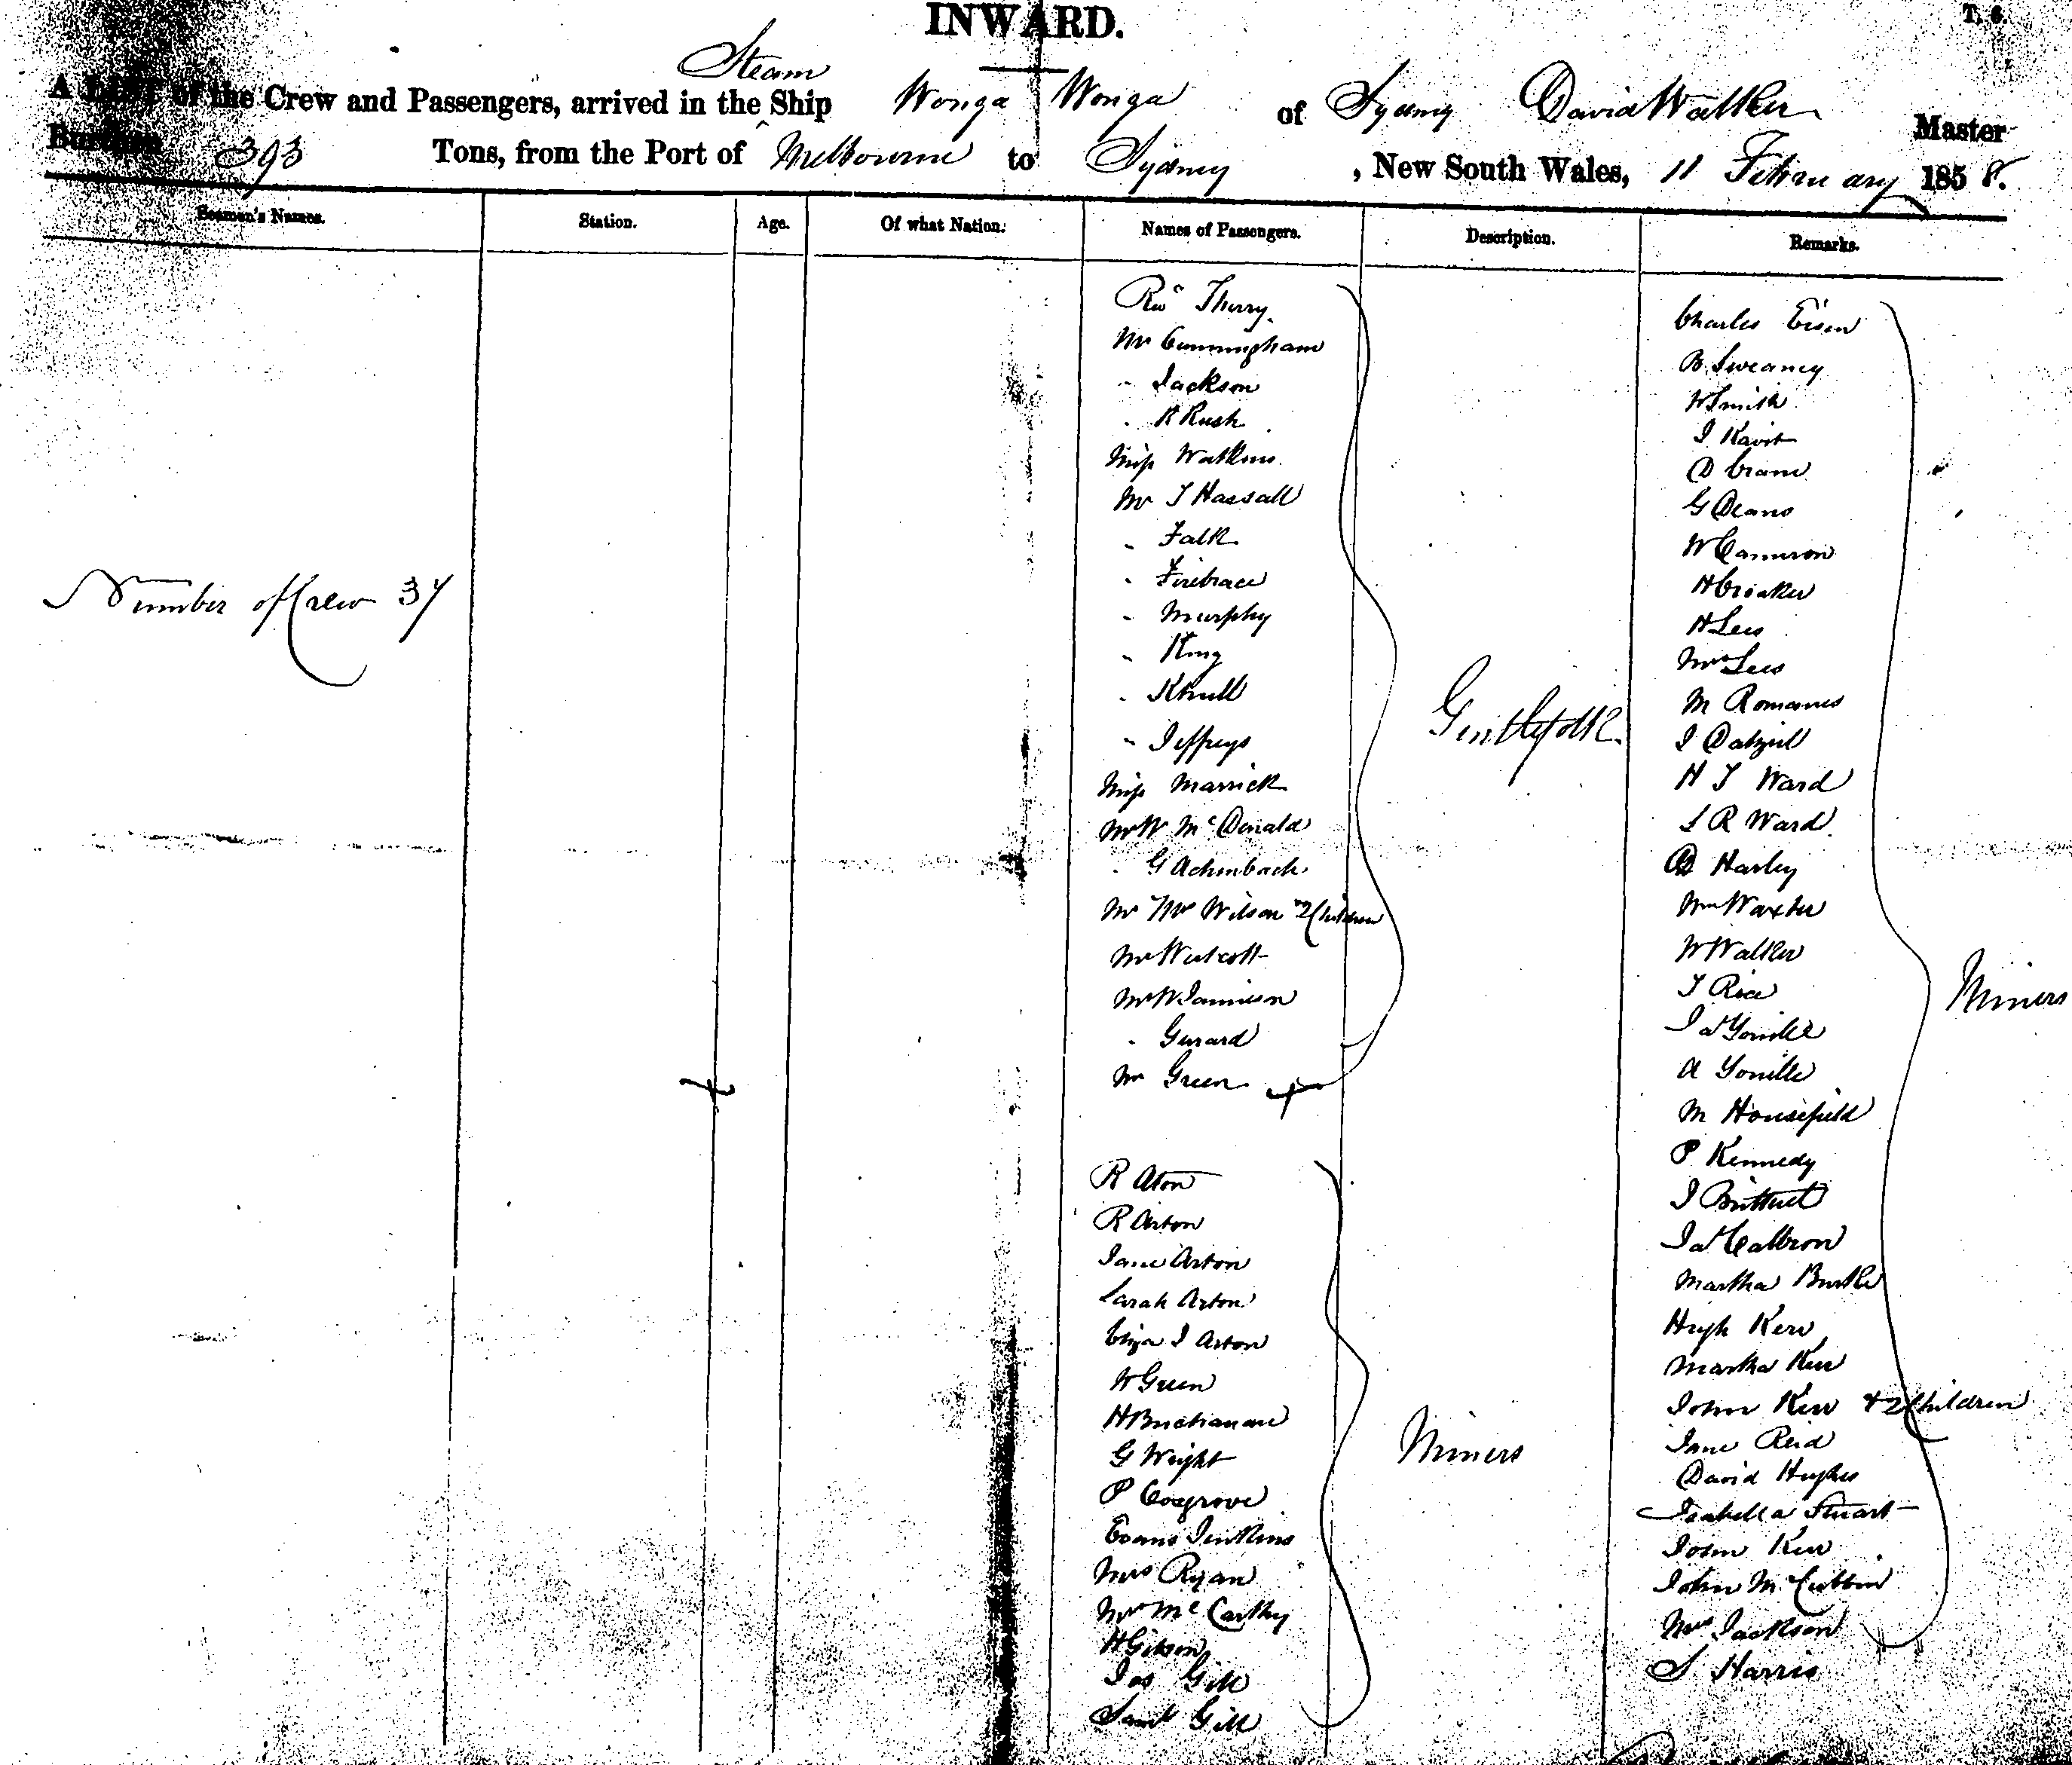 INWARD.
T. 6.
Steam
A LIST of the Crew and Passengers, arrived in the Ship Wonga Wonga of Sydney David Walker Master
Burthen 393 Tons, from the Port of Melbourne to Sydney, New South Wales, 11 February 1858.
Seamen's Names. Station. Age. Of what Nation. Names of Passengers. Description. Remarks.
Number of Crew 37
Revd Therry
Mr Cunningham
" Jackson
" R Rush
Miss Watkins
Mr T Hassall
" Falk
" Firebrace
" Murphy
" King
" Khull
" Jeffreys
Miss Marrick
Mr W McDonald
" G Achenbach
Mr Mrs Wilson 2 Children
Mr Westcott
Mr W Jamieson
" Gerard
Mr Green
Gentlefolk
R Aton
R Arton
Jane Arton
Sarah Arton
Eliza J Arton
W Green
H Buchanan
G Wright
P Cosgrove
Evans Jenkins
Mrs Ryan
Mrs McCarthy
H Gibson
Jas Gill
Saml Gill
Miners
Charles Eisen
B Sweaney
W Smith
J
D Crane
G Deans
W Cameron
H Croaker
H Lees
Mrs Lees
M Romanes
J Dalziel
H T Ward
S R Ward
Harley
Wm Waxter
W Walker
T Rice
Jas Yonille
A Yonille
M Housefield
P Kennedy
J
Jas Calbron
Martha Burke
Hugh Kerr
Martha Kerr
John Kerr + 2 Children
Jane Reid
David Hughes
Isabella Stuart
John Kerr
John McCubbin
Mrs Jackson
S Harris
Miners